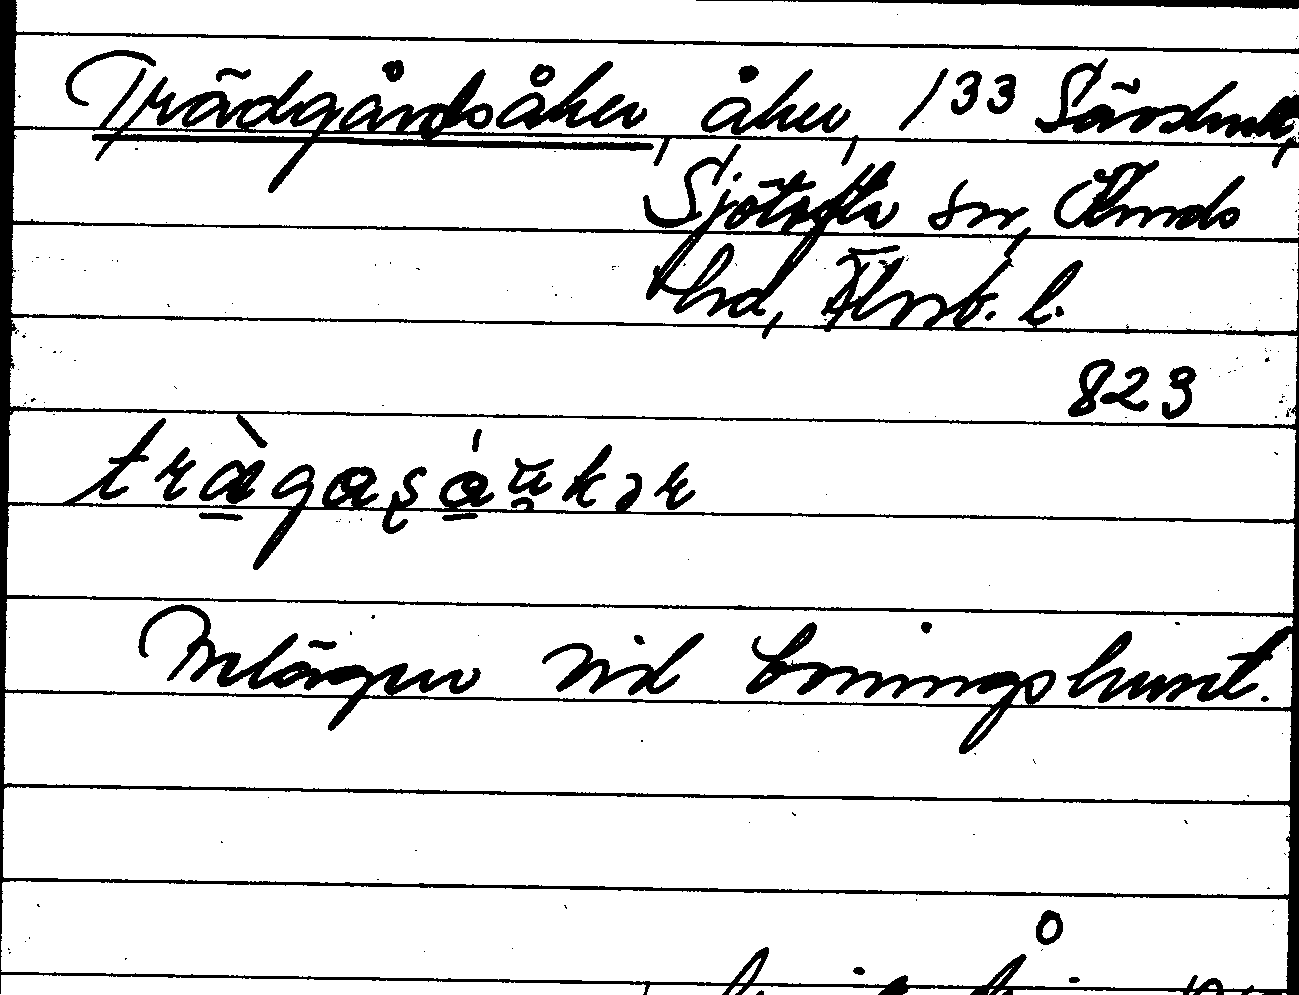 Trädgårdsåker, åker, 133 Särshult,
Sjötofta sn, Kinds
hd, Älvsb. l.
823
Belägen vid boningshuset.